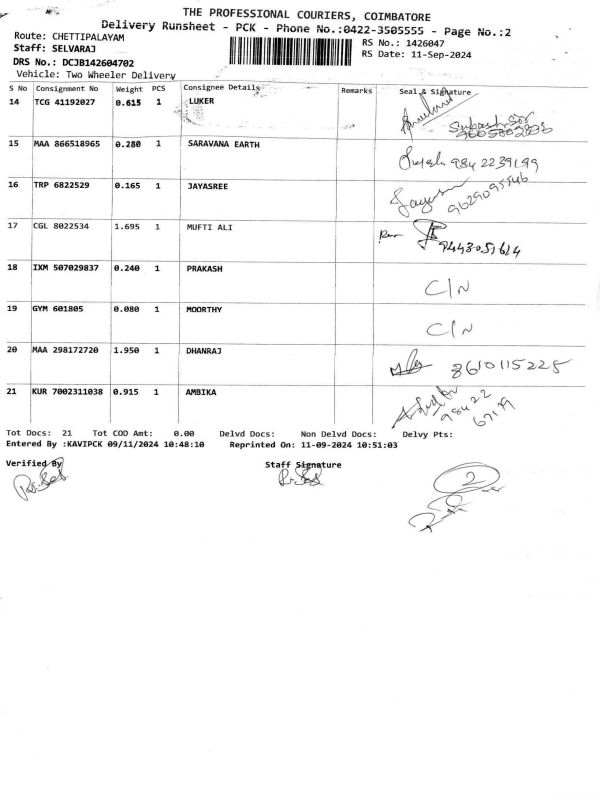 THE PROFESSIONAL COURIERS, COIMBATORE
Delivery Runsheet - PCK - Phone No.:0422-3505555 - Page No.:2
Route: CHETTIPALAYAM
RS No.: 1426047
Staff: SELVARAJ
RS Date: 11-Sep-2024
DRS No.: DCJB142604702
Vehicle: Two Wheeler Delivery
S No Consignment No Weight PCS Consignee Details Remarks Seal & Signature
14 TCG 41192027 0.615 1 LUKER
15 MAA 866518965 0.280 1 SARAVANA EARTH 9842239199
16 TRP 6822529 0.165 1 JAYASREE 9629095546
17 CGL 8022534 1.695 1 MUFTI ALI 9443051614
18 IXM 507029837 0.240 1 PRAKASH C/N
19 GYM 601805 0.080 1 MOORTHY C/N
20 MAA 298172720 1.950 1 DHANRAJ 8610115225
21 KUR 7002311038 0.915 1 AMBIKA 98422
67179
Tot Docs: 21 Tot COD Amt: 0.00 Delvd Docs: Non Delvd Docs: Delvy Pts:
Entered By :KAVIPCK 09/11/2024 10:48:10 Reprinted On: 11-09-2024 10:51:03
Verified By Staff Signature
2